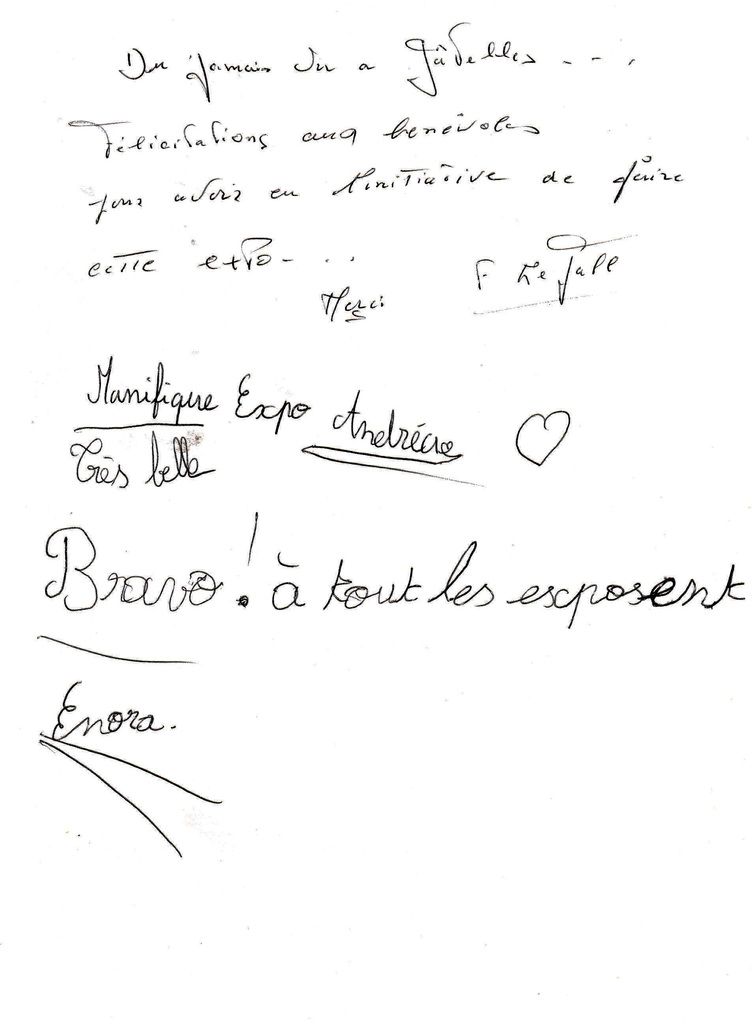 Du jamais vu a Gâvelles - - .
Félicitations aux benévoles
pour avoir eu l'initiative de faire
cette expo- ...
Merci F Le Gall
Manifique Expo
Très belle
Bravo! à tout les exposent
Enora.